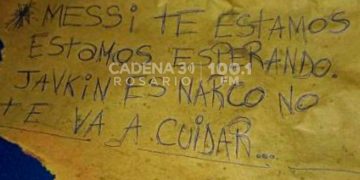 *MESSI TE ESTAMOS
ESTAMOS ESPERANDO.
CADENA 3 100.1
JAVKIN ES NARCO NO
ROSARIO FM
TE VA A CUIDAR...